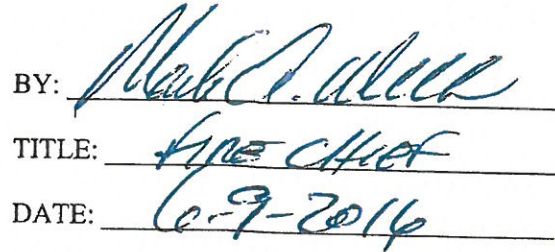 BY: Mark A.
TITLE: FIRE CHIEF
DATE: 6-9-2016